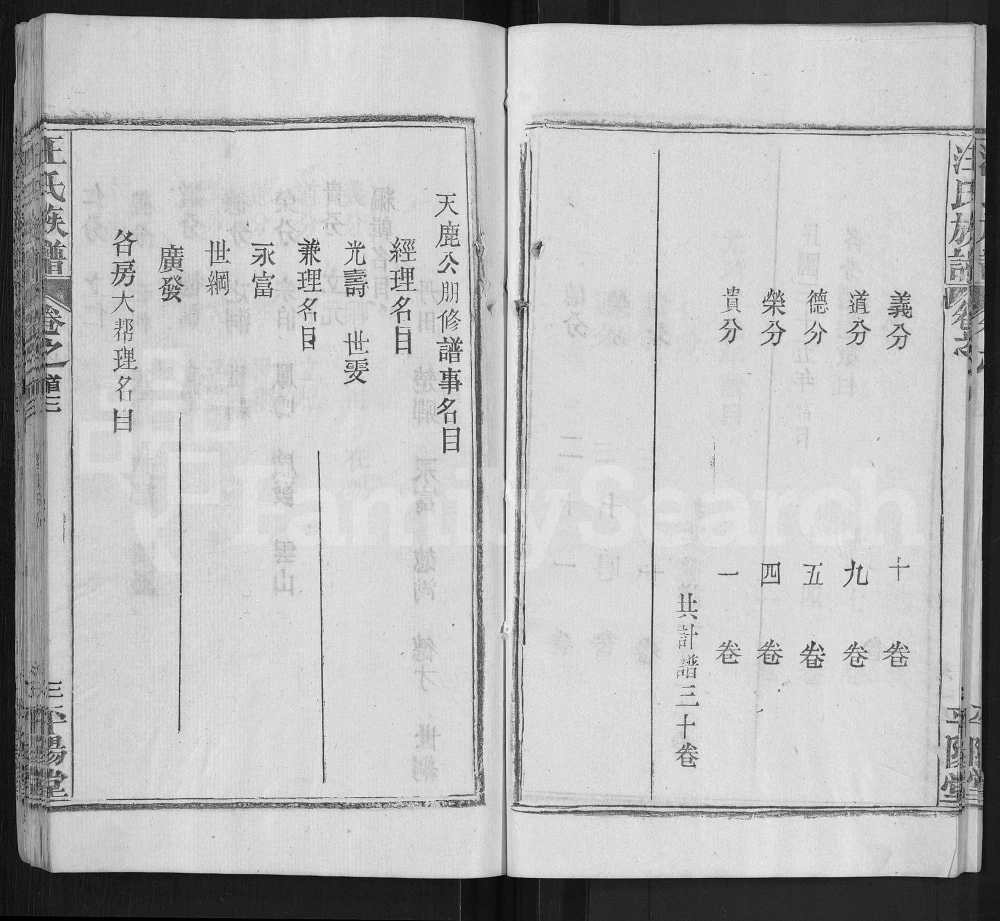 汪氏族譜
平陽堂
義分 十卷
道分 九卷
德分 五卷
榮分 四卷
貴分 一卷
共計譜三十卷
天鹿公朋修譜事名目
經理名目
光壽 世雯
兼理名目
永富
世綱
廣發
各房大帮理名目
汪氏族譜 卷之首 三
三 平陽堂
FamilySearch